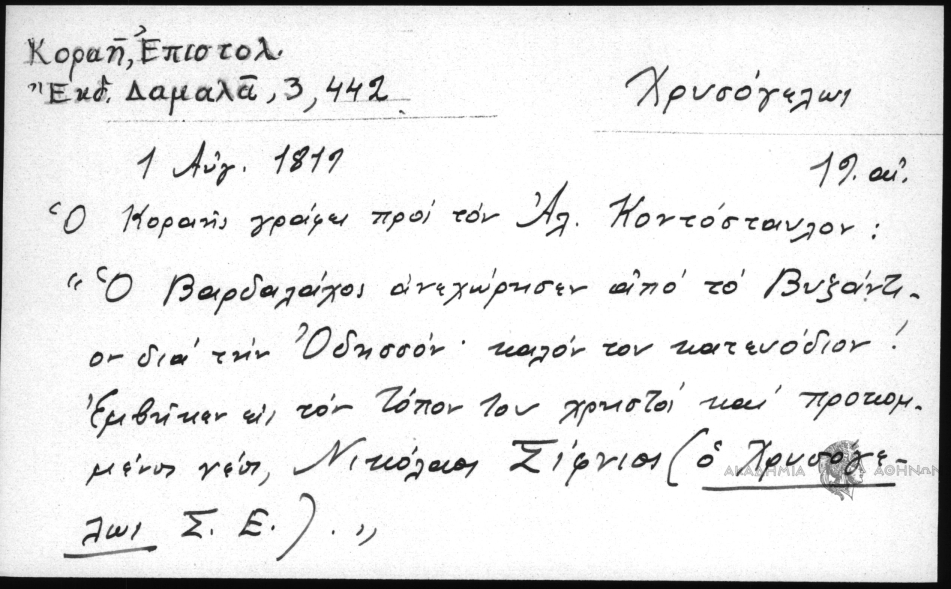 Κοραῆ, Ἐπιστολ.
Ἔκδ. Δαμαλᾶ, 3, 442
Χρυσόγελως
1 Αὐγ. 1819
19. αἰ.
Ὁ Κοραῆς γράφει πρὸς τὸν Ἀλ. Κοντόσταυλον :
"Ὁ Βαρδαλάχος ἀνεχώρησεν ἀπό τό Βυζάντι-
ον διά τήν Ὀδησσόν· καλόν τον κατευόδιον!
Ἐμβῆκεν εἰς τόν τόπον του χρηστός καί προκομ-
μένος νέος, Νικόλαος Σίφνιος (ὁ Χρυσόγε-
λως Σ. Ε.) . "
ΑΚΑΔΗΜΙΑ ΑΘΗΝΩΝ